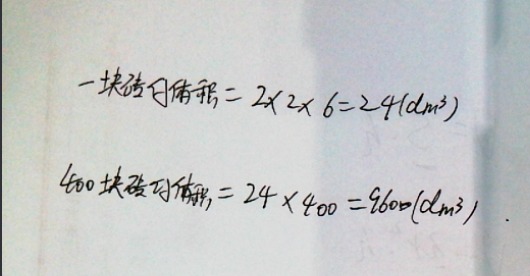 一块砖的体积=2×2×6=24(dm³)
400块砖的体积=24×400=9600(dm³)